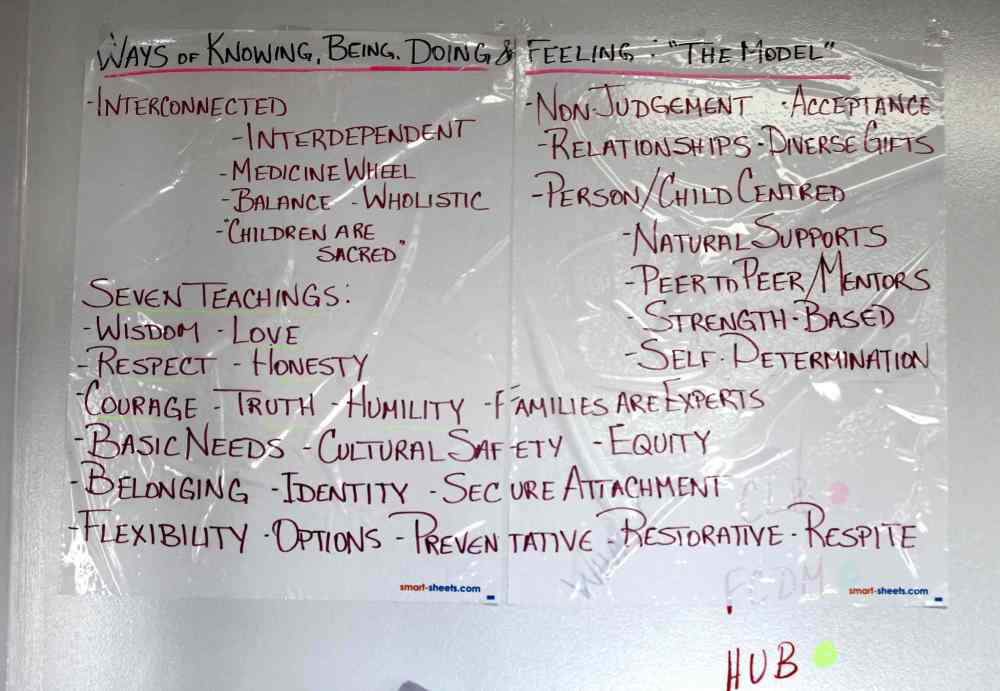 WAYS OF KNOWING, BEING. DOING & FEELING: "THE MODEL"
-INTERCONNECTED
-INTERDEPENDENT
-MEDICINE WHEEL
-BALANCE -WHOLISTIC
-"CHILDREN ARE
SACRED"
-NON-JUDGEMENT ·ACCEPTANCE
-RELATIONSHIPS -DIVERSE GIFTS
-PERSON/CHILD CENTRED
-NATURAL SUPPORTS
-PEER TO PEER/MENTORS
-STRENGTH-BASED
-SELF-DETERMINATION
SEVEN TEACHINGS:
-WISDOM -LOVE
-RESPECT -HONESTY
-COURAGE -TRUTH -HUMILITY -FAMILIES ARE EXPERTS
-BASIC NEEDS -CULTURAL SAFETY -EQUITY
-BELONGING -IDENTITY -SECURE ATTACHMENT
-FLEXIBILITY -OPTIONS -PREVENTATIVE -RESTORATIVE -RESPITE
smart-sheets.com smart-sheets.com
FCDM
HUB